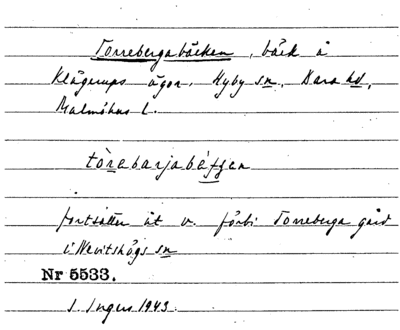 Torrebergabäcken, bäck å
Klågerups ägor, Hyby sn, Bara hd,
Malmöhus l.
tòrabarjabɛ́ʃɡən
fortsätter åt v. förbi Torreberga gård
i Nevitshögs sn
Nr 5533.
S. Ingers 1943.